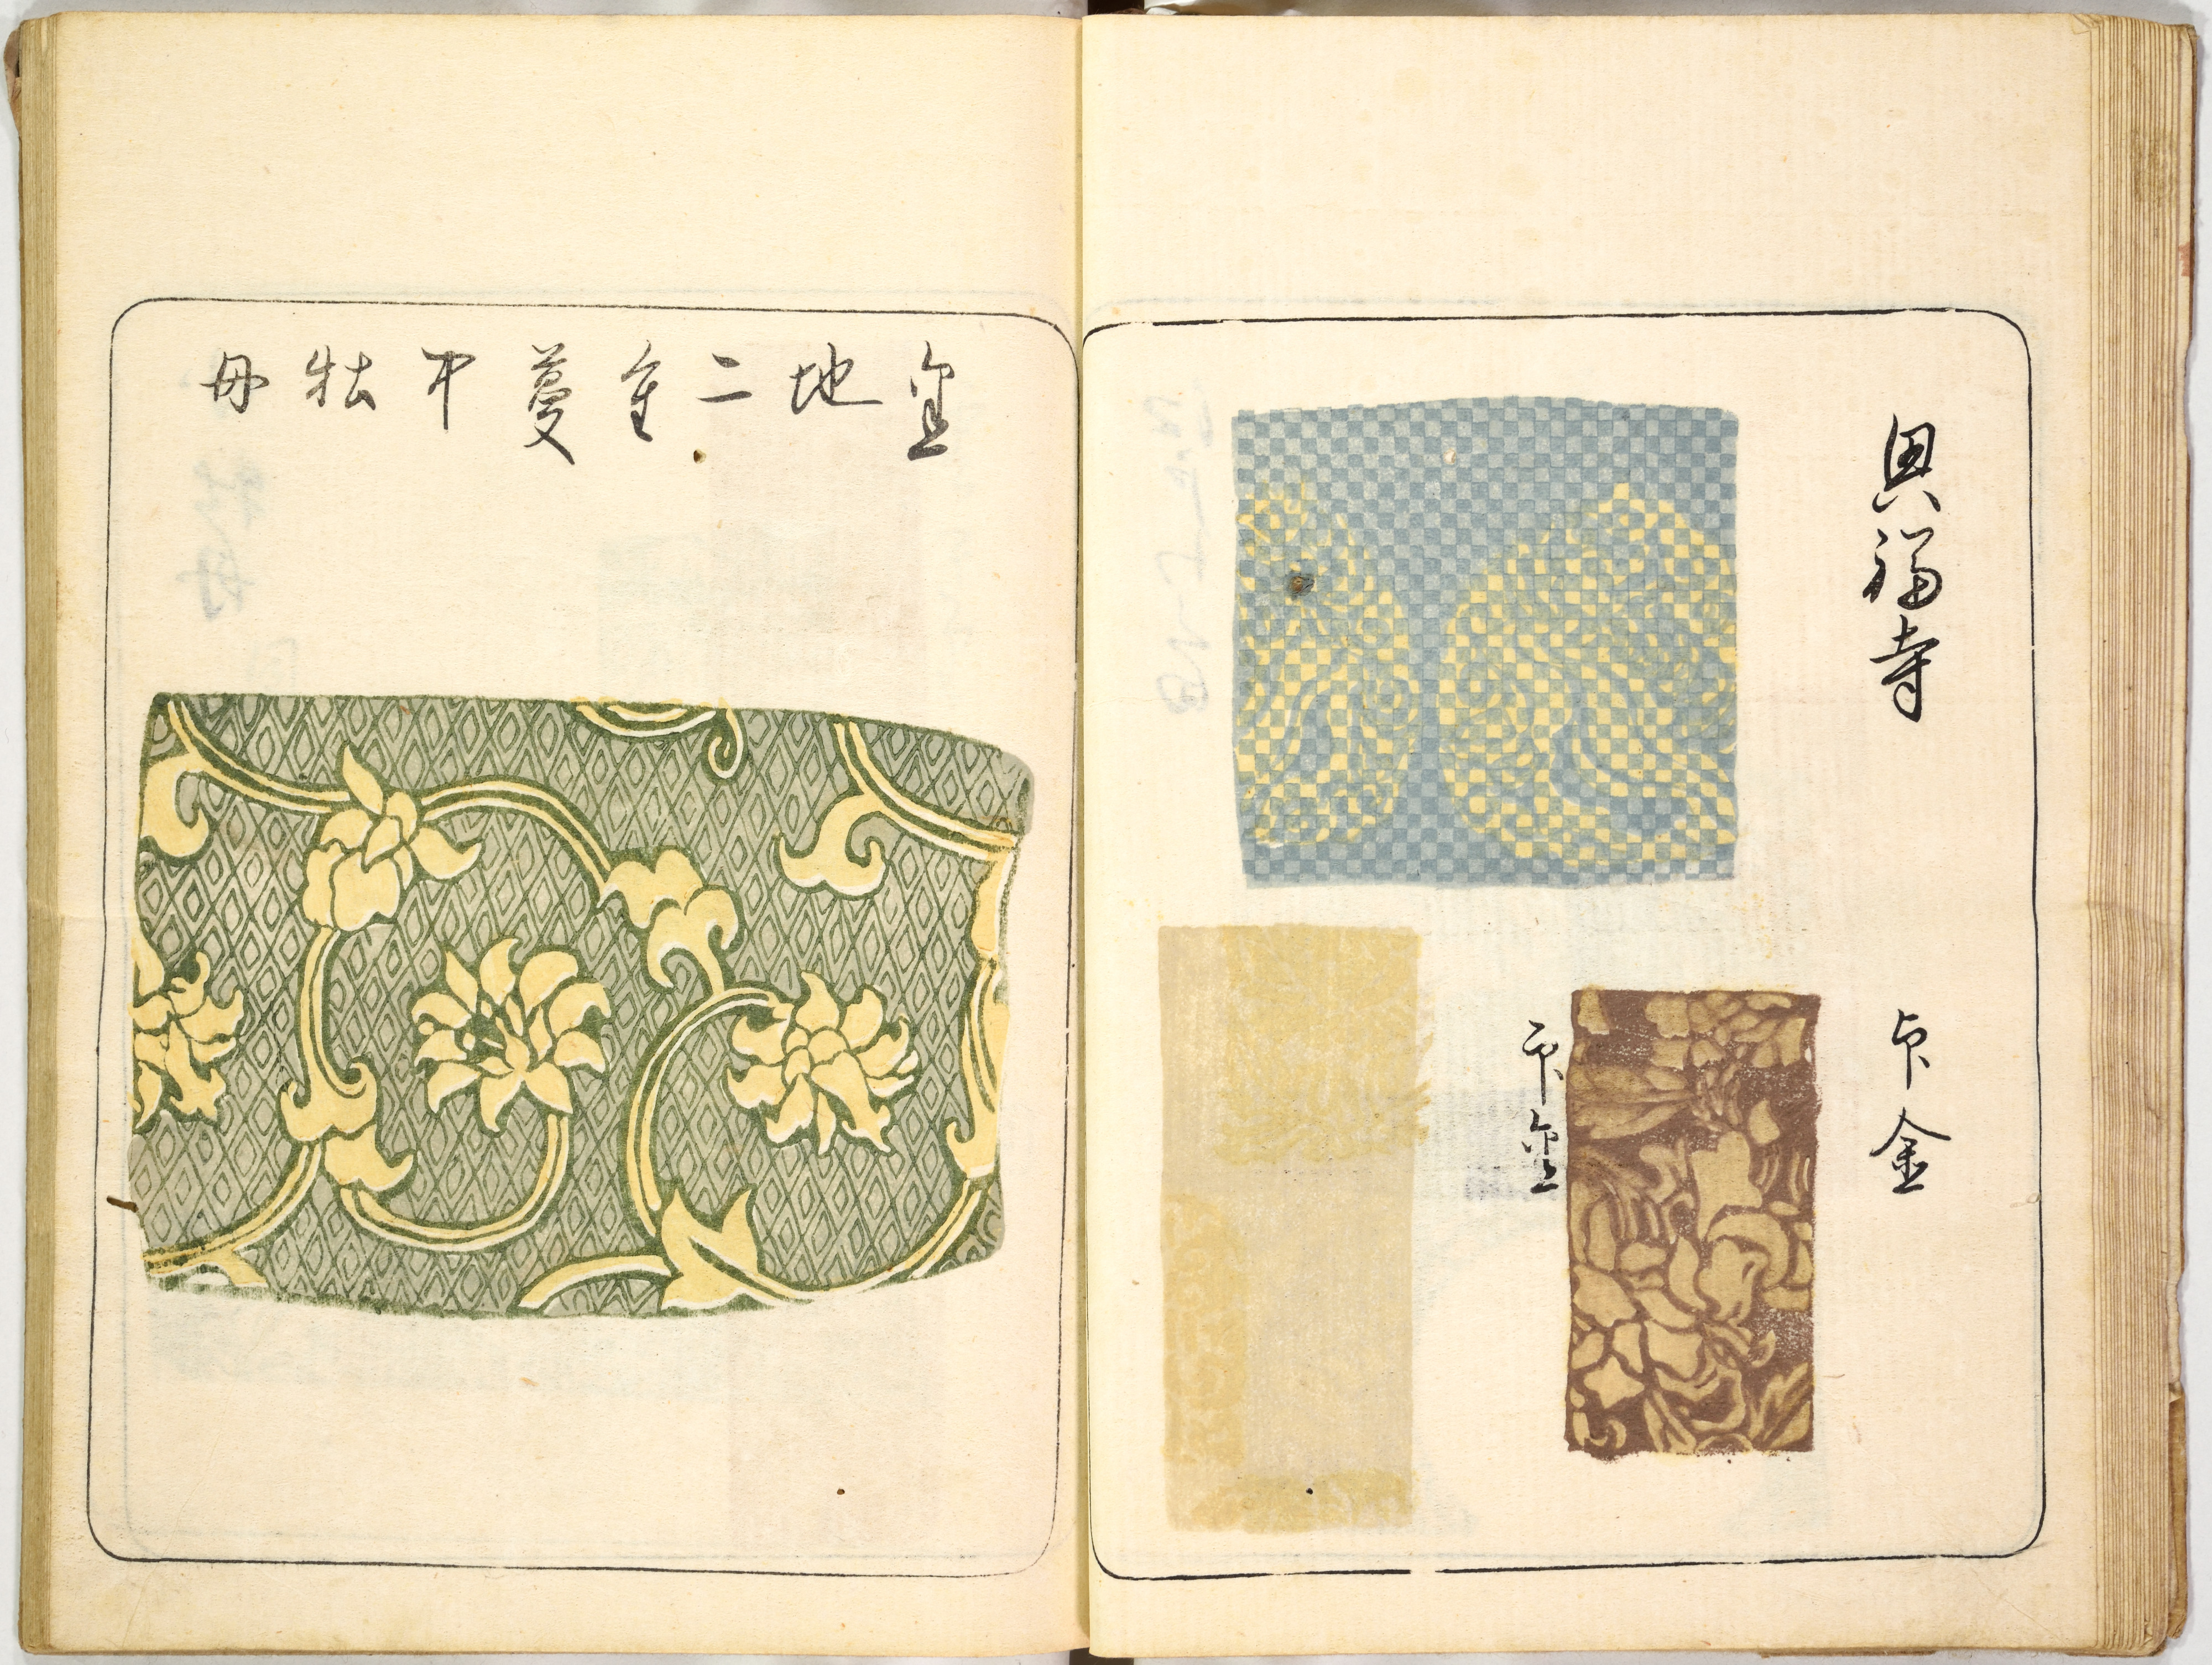 興福寺
印金
印金
金地二重蔓中牡丹